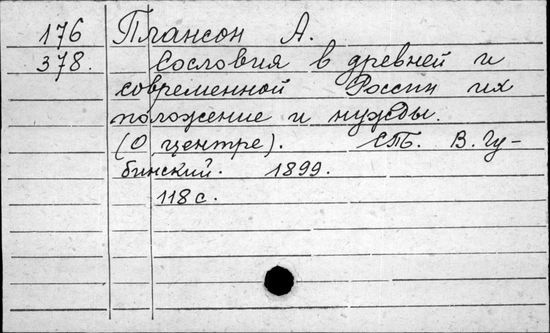 176 Плансон А.
378. Сословия в древней и
современной России их
положение и нужды.
(О центре). СПБ. В. Гу-
бинский. 1899.
118 с.